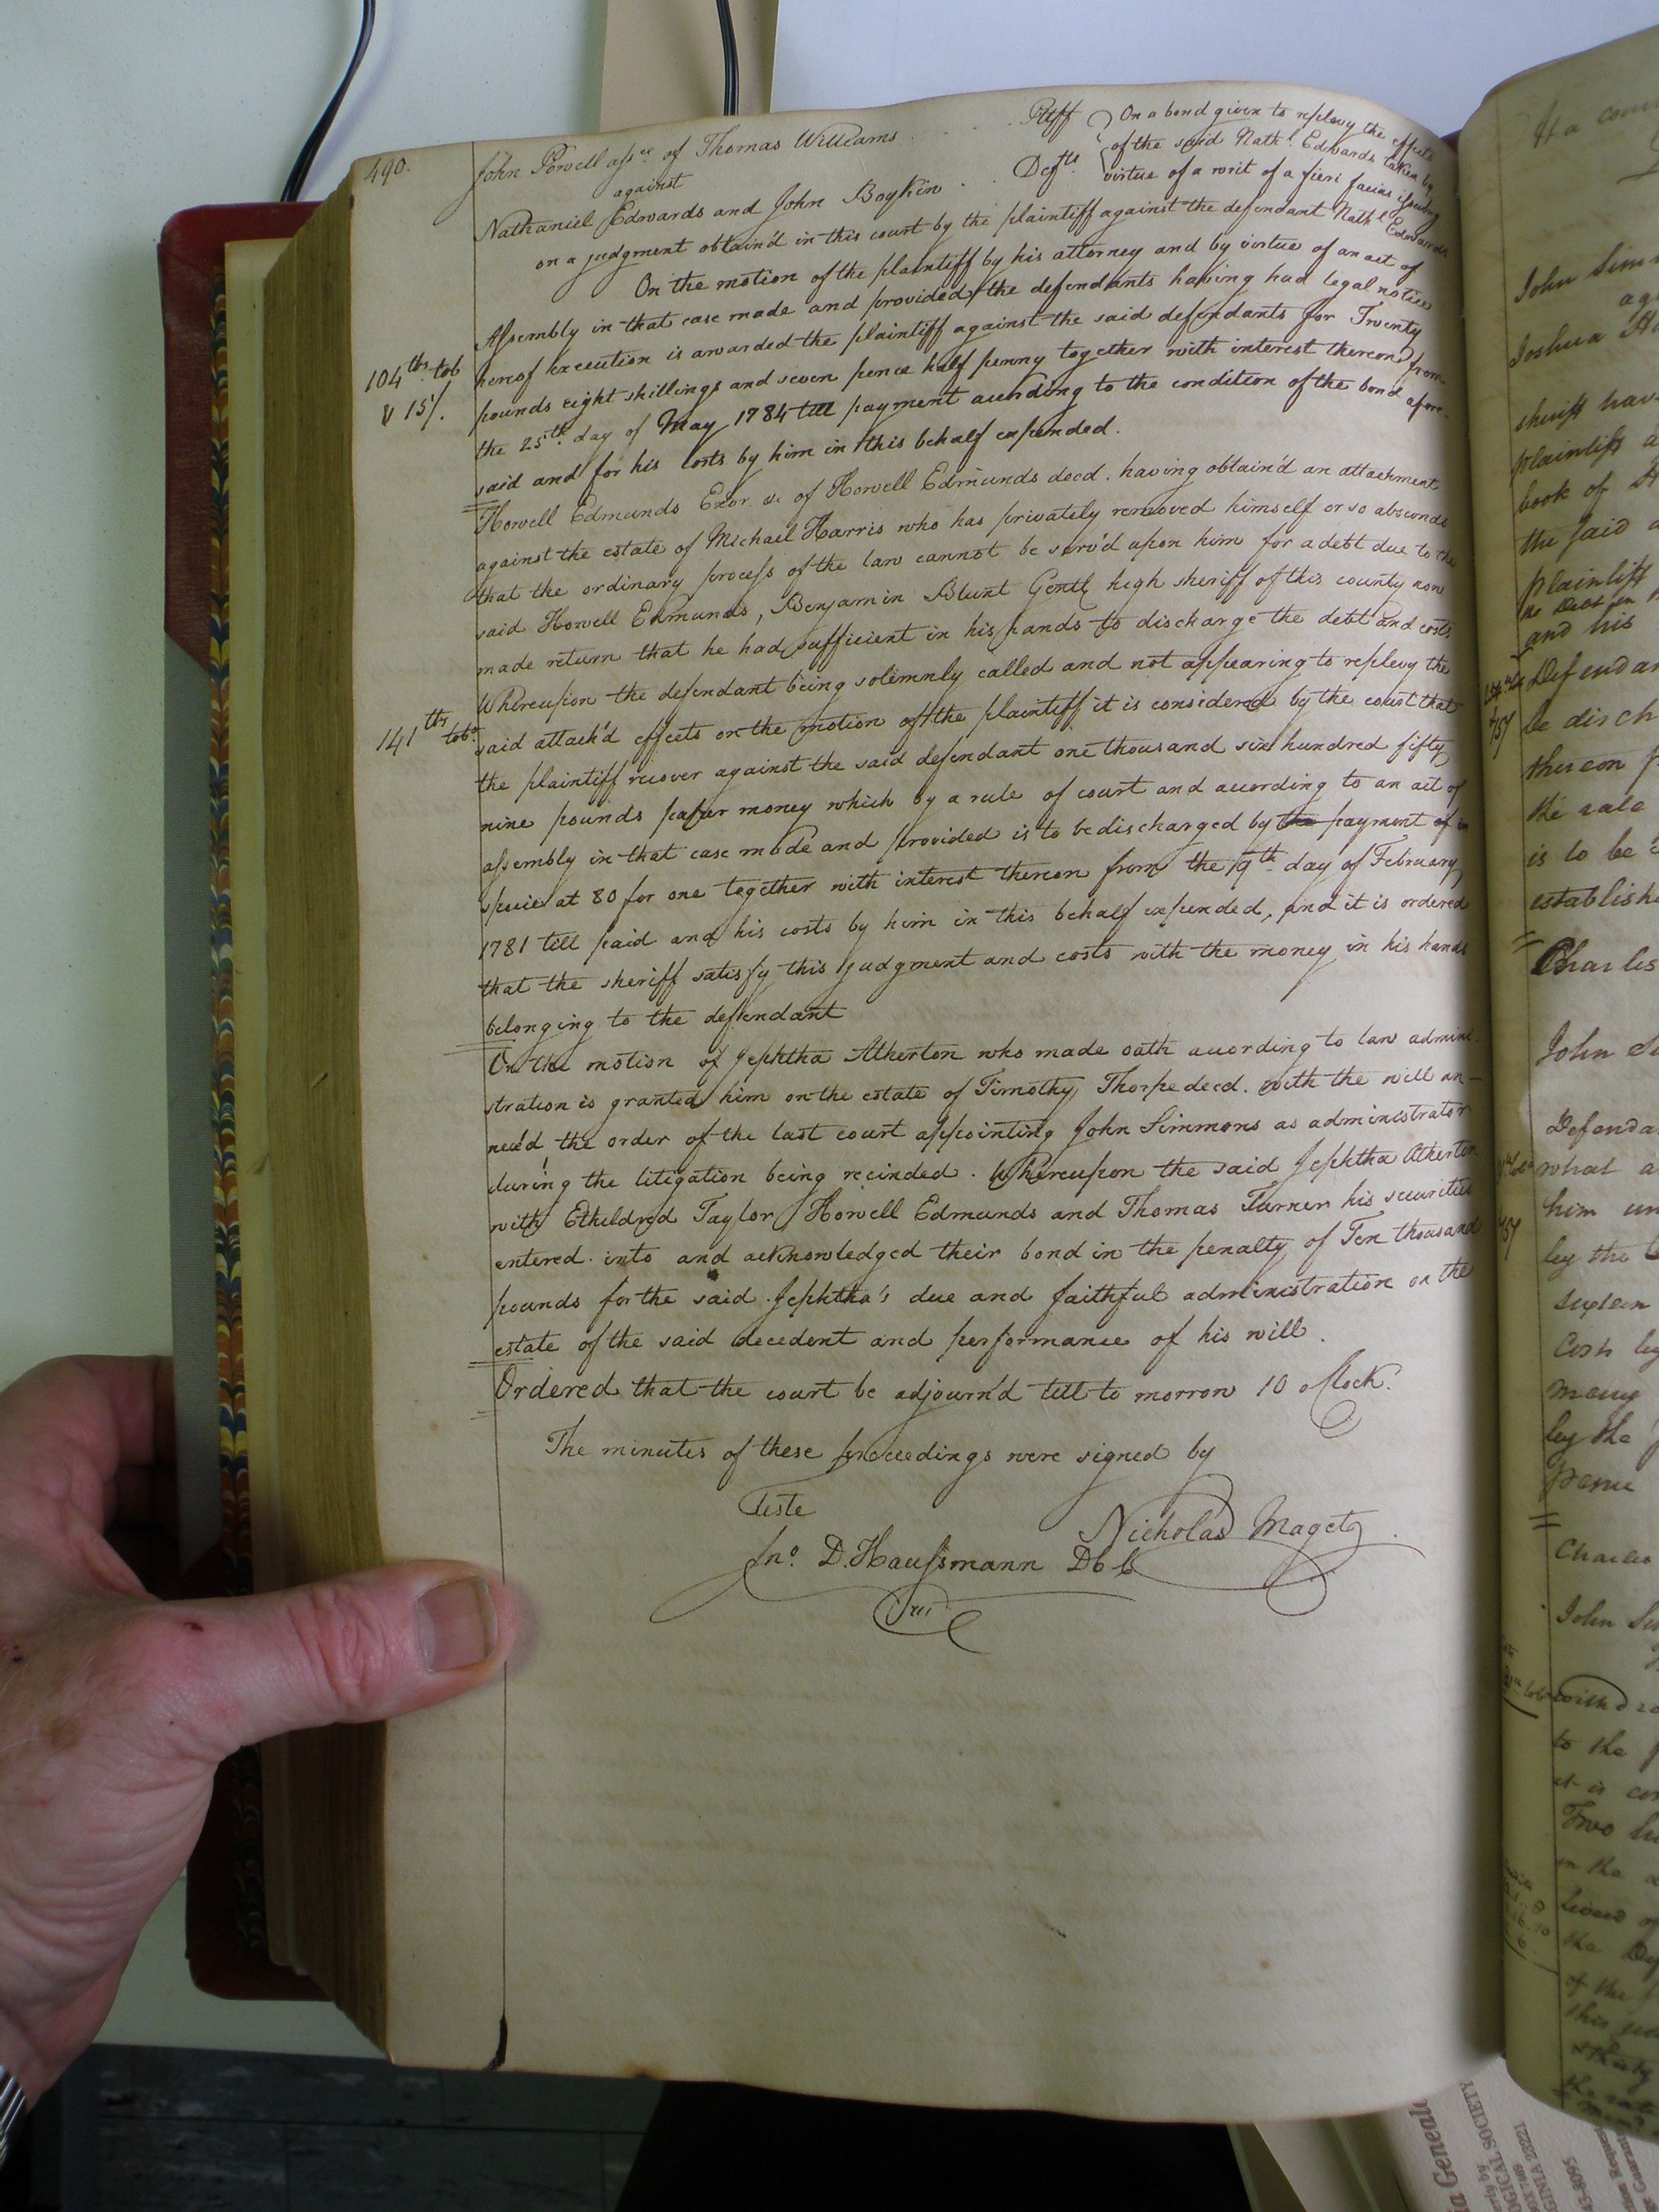 490.
John Powell assee. of Thomas Williams Pltff
against
Nathaniel Edwards and John Boykin Defts.
On a bond given to replevy the effects
of the said Nathl. Edwards taken by
virtue of a writ of a fieri facias issuing
on a judgment obtain'd in this court by the plaintiff against the defendant Nathl. Edwards
On the motion of the plaintiff by his attorney and by virtue of an act of
Assembly in that case made and provided, the defendants having had legal notice
hereof execution is awarded the plaintiff against the said defendants for Twenty
104 lbs. tob
& 15/.
pounds eight shillings and seven pence half penny together with interest thereon from
the 25th. day of May 1784 till payment according to the condition of the bond afore-
said and for his costs by him in this behalf expended.
Howell Edmunds Exor. &c of Howell Edmunds decd. having obtain'd an attachment
against the estate of Michael Harris who has privately removed himself or so absconds
that the ordinary process of the law cannot be serv'd upon him for a debt due to the
said Howell Edmunds, Benjamin Blunt Gentl high sheriff of this county now
made return that he had sufficient in his hands to discharge the debt and costs
Whereupon the defendant being solemnly called and not appearing to replevy the
141 lbs tobo.
said attach'd effects on the motion of the plaintiff it is considered by the court that
the plaintiff recover against the said defendant one thousand six hundred fifty
nine pounds paper money which by a rule of court and according to an act of
assembly in that case made and provided is to be discharged by the payment of in
specie at 80 for one together with interest thereon from the 19th. day of February
1781 till paid and his costs by him in this behalf expended, and it is ordered
that the sheriff satisfy this judgment and costs with the money in his hands
belonging to the defendant
On the motion of Jephtha Atherton who made oath according to law admini-
stration is granted him on the estate of Timothy Thorpe decd. with the will an-
nex'd the order of the last court appointing John Simmons as administrator
during the litigation being recinded. Whereupon the said Jephtha Atherton
with Etheldred Taylor Howell Edmunds and Thomas Turner his securities
entered into and acknowledged their bond in the penalty of Ten thousand
pounds for the said Jephtha's due and faithful administration on the
estate of the said decedent and performance of his will.
Ordered that the court be adjourn'd till to morrow 10 oClock.
The minutes of these proceedings were signed by
Teste
Nicholas Maget
Jno. D. Haussmann D C C
At a cour
John Simm
aga
Joshua
sheriff hav
plaintiff a
book of
the said a
plaintiff
and his
Defendan
be disch
thereon
the rate
is to be
establish
Charles
John Si
Defenda
what a
him un
ley the
Costs
many
by the
Charles
John Si
to the
it is con
Two hu
in the
the Def
of the
GICAL SOCIETY